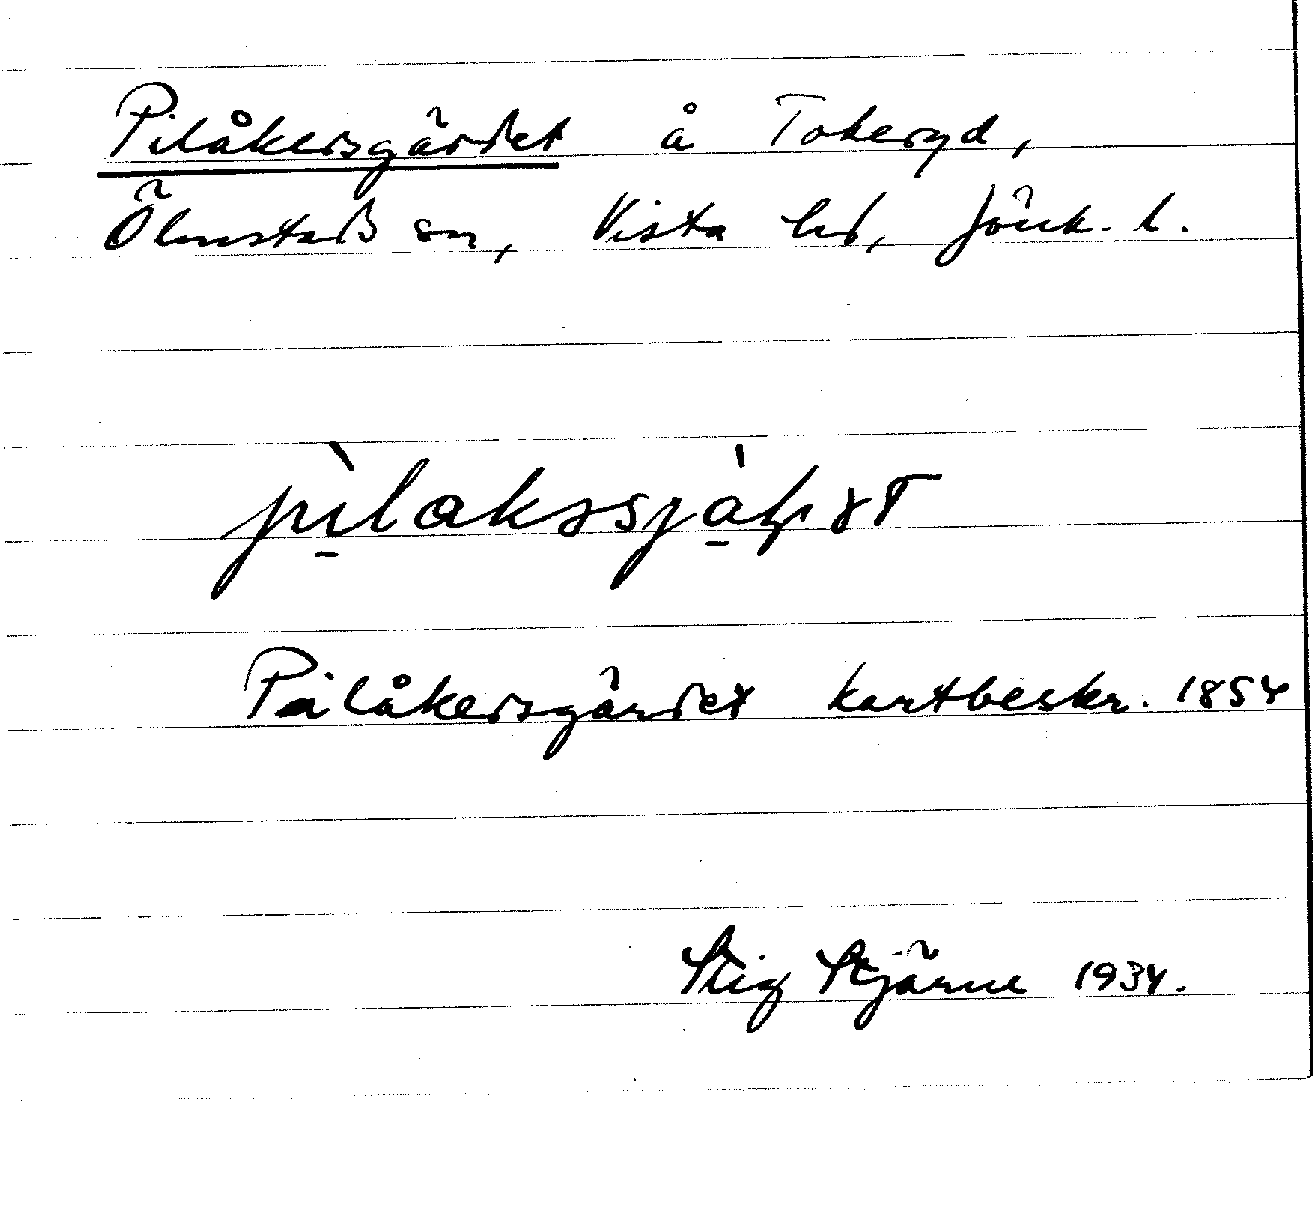 Pilåkersgärdet å Tokeryd,
Ölmstads sn, Vista hd, Jönk. l.
Pilåkersgärdet kartbeskr. 1854
Stig Stjärne 1934.